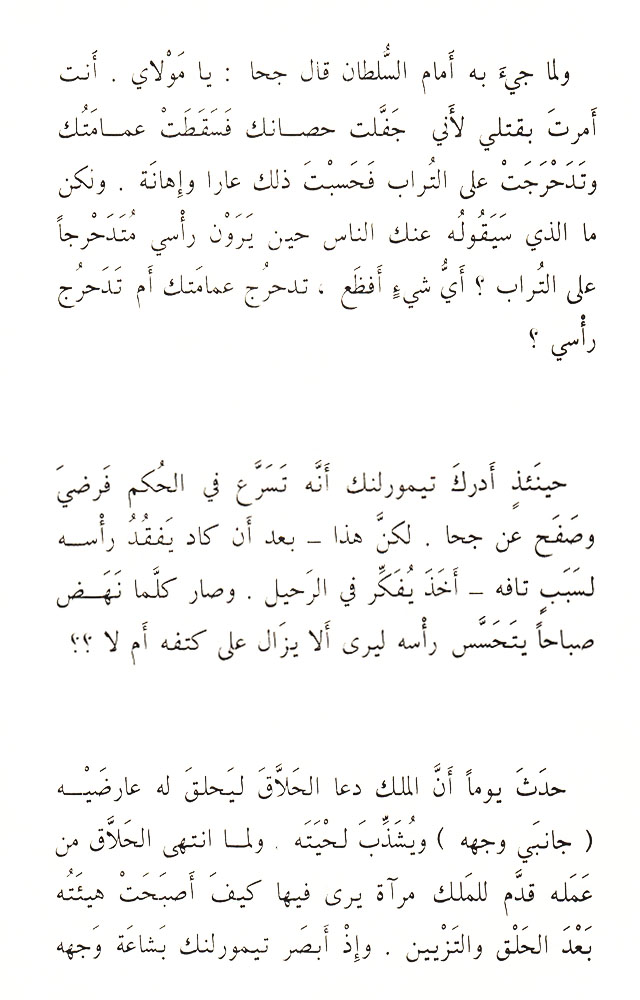 ولما جيءَ به أَمام السُّلطان قال جحا : يا مَوْلاي . أَنت
أَمرتَ بقتلي لأَني جَفَّلت حصانك فَسَقَطَتْ عمامَتُك
وتَدَحْرَجَتْ على التُراب فَحَسبْتَ ذلك عارا وإِهانَة . ونكن
ما الذي سَيَقُولُه عنك الناس حين يَرَوْن رأْسي مُتَدَحْرجاً
على التُراب ؟ أَيُّ شيءٍ أَفظَع ، تدحرُج عمامَتك أَم تَدَحرُج
رأْسي ؟
حينَئذٍ أَدركَ تيمورلنك أَنَّه تَسَرَّع في الحُكم فَرضيَ
وصَفَح عن جحا . لكنَّ هذا – بعد أَن كاد يَفقُدُ رأْسه
لسَبَبٍ تافه – أَخَذَ يُفَكِّر في الرَحيل . وصار كلَّما نَهَض
صباحاً يتَحَسَّس رأْسه ليرى أَلا يزَال على كتفه أَم لا ؟؟
حدَثَ يوماً أَنَّ الملك دعا الحَلاَّقَ ليَحلقَ له عارضَيْه
( جانبَي وجهه ) ويُشَذِّبَ لحْيَتَه . ولما انتهى الحَلاَّق من
عَمَله قدَّم للمَلك مرآة يرى فيها كيفَ أَصبَحَتْ هيئَتُه
بَعْدَ الحَلْق والتَزْيين . وإِذْ أَبصَر تيمورلنك بَشاعَة وَجهه